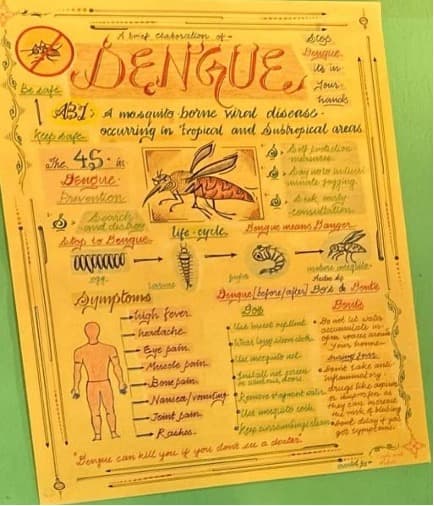 A brief elaboration of -
DENGUE
Stop
Dengue
Its in
Your
hands
Be safe
Keep safe
A mosquito-borne viral disease-
occurring in Tropical and Subtropical areas
The 4S in
Dengue
Prevention
S Search
and destroy
S Self protection
measures
S Say no to indiscri
minate fogging
S Seek early
consultation
Stop to Dengue
life-cycle
Dengue means Danger
egg
larvae
pupa
mature mosquito
Dengue [before/after] Do's & Dont's
Symptoms
High fever
headache
Eye pain
Muscle pain
Bone pain
Nausea/vomiting
Joint pain
Rashes
Dos
Use insect repellent
Wear long sleeve cloth
Use mosquito net
Install net screen
in windows, doors
Remove stagnant water
Use mosquito coils
Keep surroundings clean
Donts
Do not let water
accumulate in
open spaces around
Your home
during fever
Dont take anti
inflammatory
drugs like aspirin
or ibuprofen as
they can increase
the risk of bleeding
Dont delay if you
got symptoms
"Dengue can kill you if you don't see a doctor"